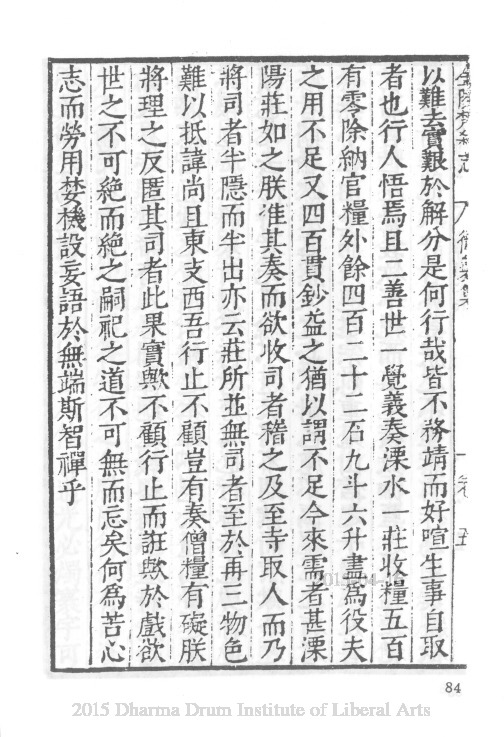 以難去實艱於解分是何行哉皆不務靖而好喧生事自取
者也行人悟焉且二善世一覺義奏溧水一莊收糧五百
有零除納官糧外餘四百二十二石九斗六升盡為役夫
之用不足又四百貫鈔益之猶以謂不足今來需者甚溧
陽莊如之朕准其奏而欲收司者稽之及至寺取人而乃
將司者半隱而半出亦云莊所並無司者至於再三物色
難以抵諱尚且東支西吾行止不顧豈有奏僧糧有礙朕
將理之反匿其司者此果實歟不顧行止而誑歟於戲欲
世之不可絶而絶之嗣祀之道不可無而忘矣何為苦心
志而勞用婪機設妄語於無端斯智禪乎
84
2015 Dharma Drum Institute of Liberal Arts